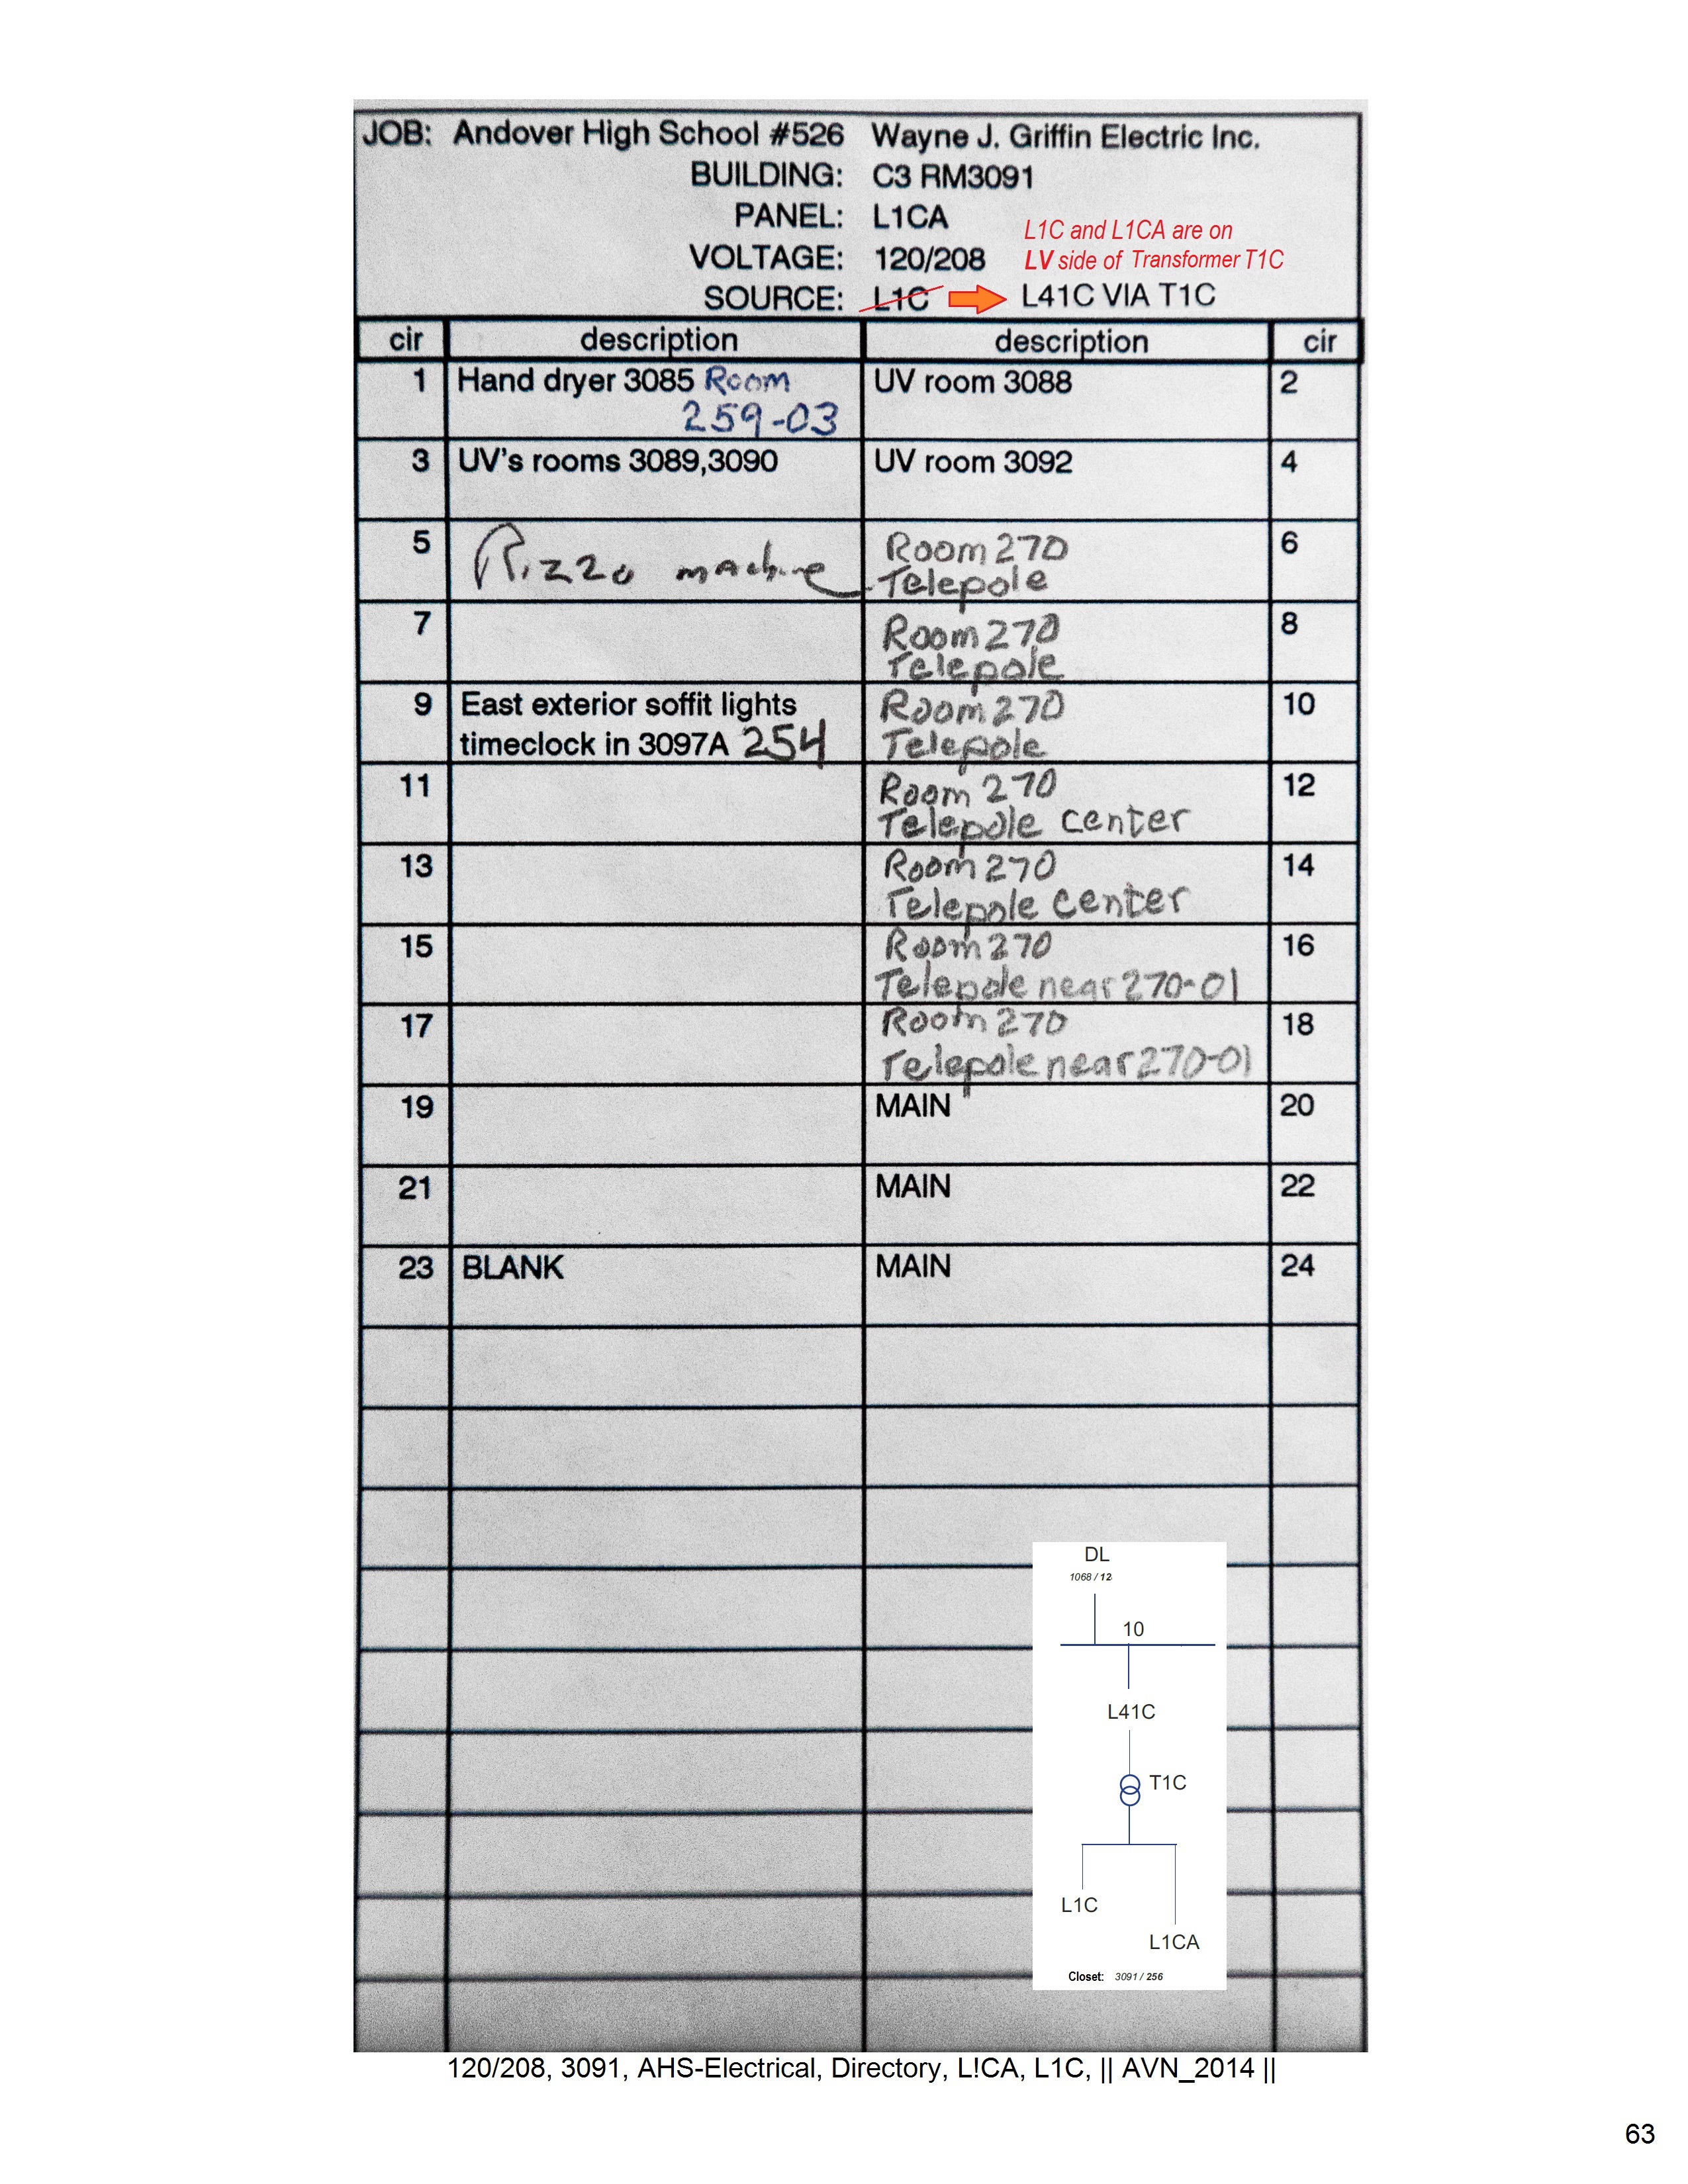 JOB: Andover High School #526 Wayne J. Griffin Electric Inc.
BUILDING: C3 RM3091
PANEL: L1CA
L1C and L1CA are on
VOLTAGE: 120/208
LV side of Transformer T1C
SOURCE: L1C L41C VIA T1C
cir description description cir
1 Hand dryer 3085 Room UV room 3088 2
259-03
3 UV's rooms 3089,3090 UV room 3092 4
5 Rizzo machine Room 270 6
Telepole
7 Room 270 8
Telepole
9 East exterior soffit lights Room 270 10
timeclock in 3097A 254 Telepole
11 Room 270 12
Telepole center
13 Room 270 14
Telepole center
15 Room 270 16
Telepole near 270-01
17 Room 270 18
Telepole near 270-01
19 MAIN 20
21 MAIN 22
23 BLANK MAIN 24
DL
1068 / 12
10
L41C
T1C
L1C
L1CA
Closet: 3091 / 256
120/208, 3091, AHS-Electrical, Directory, L!CA, L1C, || AVN_2014 ||
63